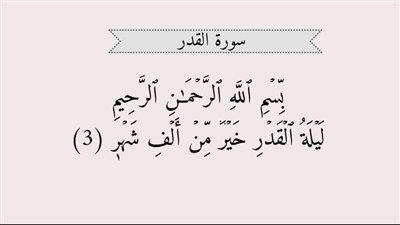 سورة القدر
بِّسْمِ ٱللَّهِ ٱلرَّحْمَـٰنِ ٱلرَّحِيمِ
لَيْلَةُ ٱلْقَدْرِ خَيْرٌ مِّنْ أَلْفِ شَهْرٍ (3)